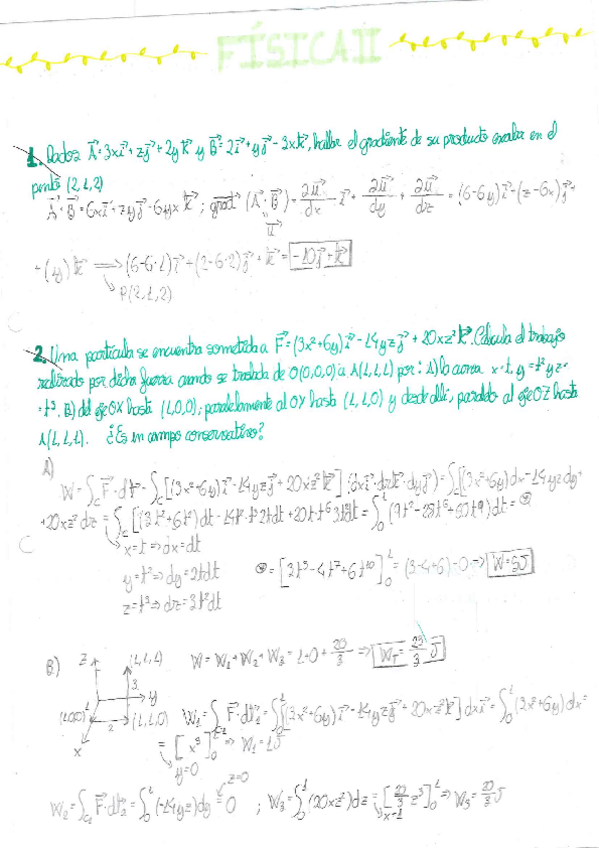 FÍSICA II
1. Dados A⃗=3xi⃗+zj⃗+2yk⃗ y B⃗=2i⃗+yj⃗-3xk⃗, hallar el gradiente de su producto escalar en el
punto (2,1,2)
A⃗·B⃗=6xi⃗+zyj⃗-6yxk⃗ ; grad⃗ (A⃗·B⃗)= ∂u⃗/dx i⃗+ ∂u⃗/dy + ∂u⃗/dz = (6-6y)i⃗+(z-6x)j⃗+
u⃗
+(y)k⃗ ⟹ (6-6·1)i⃗+(2-6·2)j⃗+k⃗= -10j⃗+k⃗
P(2,1,2)
2. Una partícula se encuentra sometida a F⃗=(3x²+6y)i⃗-14yzj⃗+20xz²k⃗. Calcula el trabajo
realizado por dicha fuerza cuando se traslada de O(0,0,0) a A(1,1,1) por: A) la curva x=t, y=t² y z=
=t³. B) del eje OX hasta (1,0,0), paralelamente al OY hasta (1,1,0) y desde allí, paralelo al eje OZ hasta
A(1,1,1). ¿Es un campo conservativo?
A)
W=∫c F⃗·dr⃗=∫c[(3x²+6y)i⃗-14yzj⃗+20xz²k⃗](dxi⃗+dzk⃗+dyj⃗)=∫c[(3x²+6y)dx-14yzdy+
+20xz²dz=∫c[(3t²+6t²)dt-14t²·t³2tdt+20t·t⁶3t²dt=∫₀¹(9t²-28t⁶+60t⁹)dt=⊛
x=t⇒dx=dt
y=t²⇒dy=2tdt
⊛=[3t³-4t⁷+6t¹⁰]₀¹=(3-4+6)-0⇒ W=5J
z=t³⇒dz=3t²dt
B) z (1,1,1) W=W₁+W₂+W₃=1+0+20/3 ⇒ W_T=23/3 J
3
y
(1,0,0) 1 2 (1,1,0) W₁=∫c F⃗·dr⃗₁=∫₀¹[(3x²+6y)i⃗-14yzj⃗+20xz²k⃗]dxi⃗=∫₀¹(3x²+6y)dx=
x
=[x³]₀¹⇒W₁=1J
y=0
z=0
W₂=∫c₂ F⃗·dr⃗₂=∫₀¹(-14yz)dy=0 ; W₃=∫₀¹(20xz²)dz=[20/3 z³]₀¹⇒W₃=20/3 J
x=1